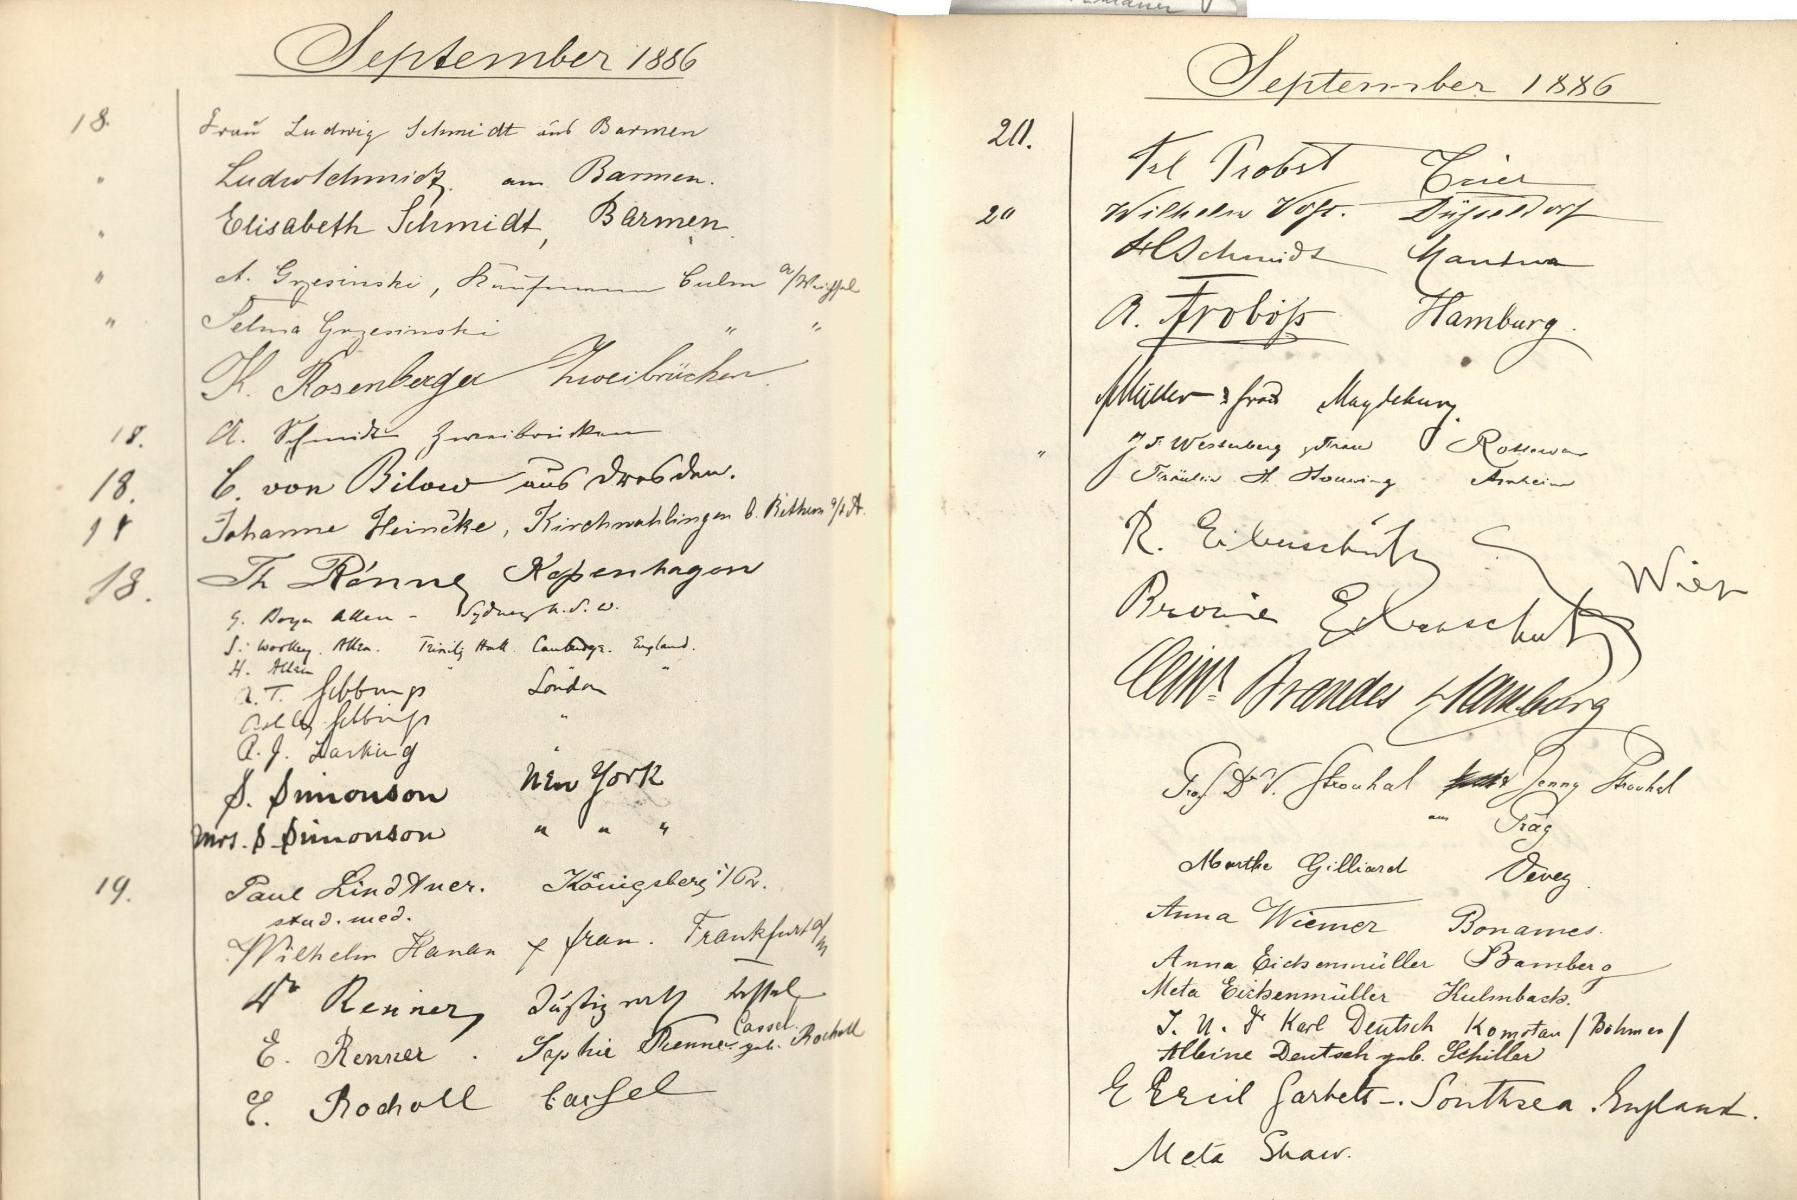 September 1886
18. Frau Ludwig Schmidt aus Barmen
" Ludw Schmidt. aus Barmen.
" Elisabeth Schmidt, Barmen
" A. Grzesinski, Kaufmann Culm a/Weichsel
" Selma Grzesinski " "
K. Rosenberger Zweibrücken.
18. A. Schmidt Zweibrücken
18. C. von Bilow aus Dresden.
Johanne Heincke, Kirchwahlingen b. Rethem a/d A.
18. Th Rönne Kopenhagen
G. Boyce Allen - Sydney N.S.W.
S. Woolley Allen. Trinity Hall. Cambridge. England.
H. Allen " "
A. T. London
"
A. J. Larking "
S. Simonson New York
Mrs. S. Simonson " " "
19. Paul Lindtner. Königsberg i/Pr.
stud. med.
Wilhelm Hanau & frau. Frankfurt a/M
Dr Renner, Justizrath Cassel
E. Renner. Sophie Renner geb. Rocholl Cassel.
E. Rocholl Cassel
September 1886
20. Frl Probst Trier
20 Wilhelm Düsseldorf
Schmidt Mantua
A. Froböß Hamburg.
Müller & frau Magdeburg.
" Westerberg, Frau
Fräulein H. Houwing Arnheim
R. Eibenschütz
Wien
Eibenschütz
Brandes Hamburg
Prof Dr V. Strouhal Jenny Strouhal
aus Prag
Marthe Gilliard Vevey.
Anna Wiemer Bonames.
Anna Eichenmüller Bamberg
Meta Eichenmüller Kulmbach.
J. U. Dr Karl Deutsch Komotau /Böhmen/
Albine Deutsch geb. Schiller
E Ercil Garbett -. Southsea. England.
Meta Shaw.